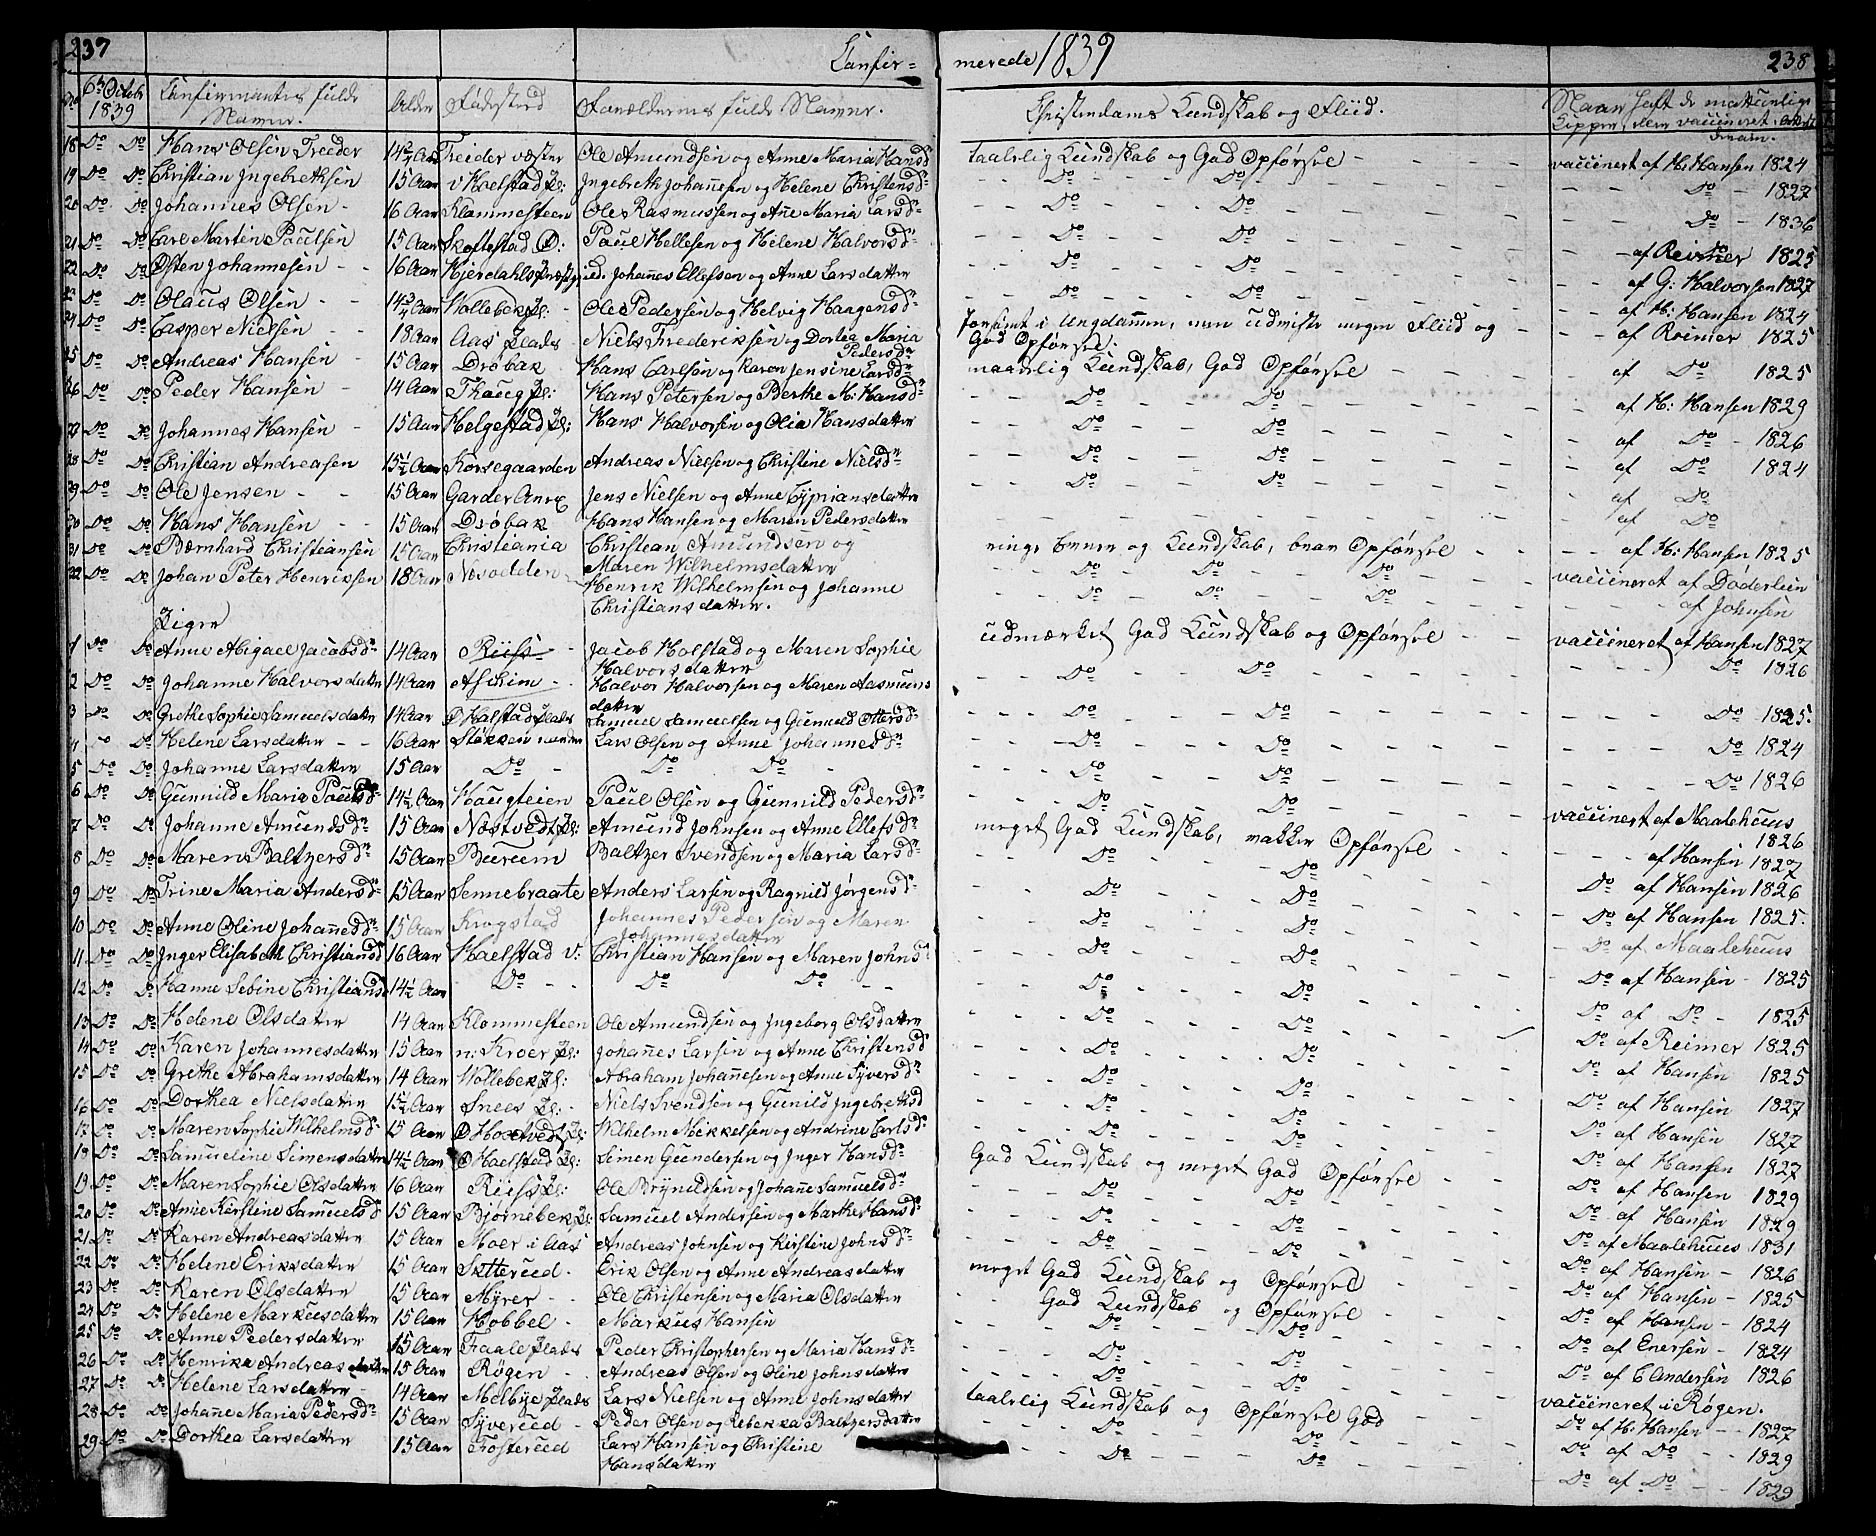 237 Confir= merede 1839 238
No 6te Octobr 1839 Confirmantes fulde Navne. Alder Fødested Forældrenes fulde Navne. Christendoms Kundskab og Fliid. Naar haft de naturlige Kopper, eller vaccineret
18 Do Do Hans Olsen Treider 14 3/4 Aar Treider vestre Ole Amundsen og Anne Maria Hansd taalelig Kundskab og God Opførsel - - - vaccinert af H: Hansen 1824
19 Do Do Christian Ingebrethsen 15 Aar v Haelstad Pl: Ingebreth Johannesen og Helene Christensd: Do Do Do 1827
20 Do Do Johannes Olsen 16 Aar Klommesteen Ole Rasmussen og Anne Maria Larsd: Do Do Do 1836
21 Do Do Carl Martin Paulsen 15 Aar Skoftestad Ø: Paul Hellesen og Helene Halvorsd: Do Do af Reimer 1825
22 Do Do Østen Johannesen 16 Aar Kjerdahl Johannes Ellefsen og Anne Larsdatter Do Do af G: Halvorsen 1827
23 Do Do Olaus Olsen 14 3/4 Aar Wollebek Pl: Ole Pedersen og Helvig Haagensd: Do Do af H: Hansen 1824
24 Do Do Casper Nielsen 18 Aar Aas Plads Niels Frederiksen og Dortea Maria Pedersd: forsømt i Ungdommen, men udviste megen Fliid og God Opførsel. af Reimer 1825
25 Do Do Andreas Hansen 15 Aar Drøbak Hans Carlsen og Karen Jensine Larsd: maadelig Kundskab, God Opførsel af Do 1825
26 Do Do Peder Hansen 14 Aar Thaug Pl: Hans Petersen og Berthe M: Hansd: Do Do af H: Hansen 1829
27 Do Do Johannes Hansen 15 Aar Helgestad Pl: Hans Halvorsen og Olia Hansdatter Do Do af Do 1826
28 Do Do Christian Andreasen 15 1/2 Aar Korsegaarden Andreas Nielsen og Christine Nielsd: Do Do af Do 1824
29 Do Do Ole Jensen 15 Aar Garder Anex Jens Nielsen og Anne Cypriansdatter Do Do af Do
30 Do Do Hans Hansen 15 Aar Drøbak Hans Hansen og Maren Pedersdatter af Do
31 Do Do Bernhard Christiansen 15 Aar Christiania Christian Amundsen og Maren Wilhelmsdatter ringe Evner og Kundskab, brav Opførsel af H: Hansen 1825
32 Do Do Johan Peter Henriksen 18 Aar Nesodden Henrik Wilhelmsen og Johanne Christiansdatter. Do Do Do vaccineret af Døderlein
Do Do Do af Johnsen
Piger
1 Do Do Anne Abigael Jacobsd: 14 Aar Riis Jacob Holstad og Maren Sophie Halvorsdatter udmærket God Kundskab og Opførsel vaccineret af Hansen 1827
2 Do Do Johanne Halvorsdatter 14 Aar Aschim Halvor Halvorsen og Maren Aasmunsdatter Do Do Do 1826
3 Do Do Grethe Sophie Samuelsdatter 14 Aar Ø Halstad Plads Samuel Samuelsen og Gunnild Ottersd: Do Do Do 1825.
4 Do Do Helene Larsdatter 16 Aar Støkken nordre Lars Olsen og Anne Johannesd: Do Do Do 1824
5 Do Do Johanne Larsdatter 15 Aar Do Do Do Do Do Do 1826
6 Do Do Gunnild Maria Paulsd: 14 1/2 Aar Haugteien Paul Olsen og Gunnild Pedersd: Do Do vaccinert af Maalehuus 1826
7 Do Do Johanne Amundsd: 15 Aar Nestvedt Pl: Amund Johnsen og Anne Ellefsd: meget God Kundskab, vakker Opførsel af Hansen 1827
8 Do Do Maren Baltzersd: 15 Aar Burum Baltzer Svendsen og Maria Larsd: Do Do Do af Hansen 1826
9 Do Do Trine Maria Andersd: 15 Aar Sennebraate Anders Larsen og Ragnild Jørgensd: Do Do Do af Hansen 1825.
10 Do Do Anne Oline Johannesd: 15 Aar Krogstad Johannes Pedersen og Maren Johannesdatter Do Do Do af Maalehuus
11 Do Do Inger Elisabeth Christiansd 16 Aar Haelstad v: Christian Hansen og Maren Johnsd: Do Do Do af Hansen 1825
12 Do Do Hanne Sebine Christiansd 14 1/2 Aar Do Do Do Do Do Do af Do 1825
13 Do Do Helene Olsdatter 14 Aar Klommesteen Ole Amundsen og Ingeborg Olsdatter Do Do Do af Reimer 1825
14 Do Do Karen Johannesdatter 15 Aar n: Kroer Pl: Johannes Larsen og Anne Christensd Do Do Do af Hansen 1825
15 Do Do Grethe Abrahamsdatter 14 Aar Wollebek Pl: Abraham Johannesen og Anne Syversd: Do Do Do af Hansen 1827
16 Do Do Dorthea Nielsdatter 15 1/2 Aar Snees Pl: Niels Svendsen og Gunild Ingebretsd Do Do Do af Hansen 1827
17 Do Do Maren Sophie Wilhelmsd: 15 Aar Ø Hostvedt Pl: Wilhelm Mikkelsen og Andrine Carlsd: Do Do Do af Hansen 1827
18 Do Do Samueline Simensdatter 14 1/2 Aar Ø Haelstad Pl: Simen Gundersen og Inger Hansd: God Kundskab og meget God Opførsel Do af Hansen 1829
19 Do Do Maren Sophie Olsdatter 16 Aar Riis Pl: Ole Brynildsen og Johanne Samuelsd: Do Do Do af Hansen 1829
20 Do Do Anne Kirstine Samuelsd: 15 Aar Bjørnebek Pl: Samuel Andersen og Marthe Hansd: Do Do Do af Maalehuus 1831
21 Do Do Karen Andreasdatter 15 Aar Moer i Aas Andreas Johnsen og Kirstine Johnsd: Do Do Do af Hansen 1826
22 Do Do Helene Eriksdatter 15 Aar Sætterud Erik Olsen og Anne Andreasdatter meget God Kundskab og Opførsel Do af Hansen 1825
23 Do Do Karen Olsdatter 15 Aar Myrer Ole Christensen og Maria Olsdatter God Kundskab og Opførsel Do af Hansen 1824
24 Do Do Helene Markusdatter 15 Aar Hobbel Markus Hansen Do Do Do af Enersen 1824
25 Do Do Anne Pedersdatter 15 Aar Faale Plads Peder Christophersen og Maria Hansd: Do Do Do af C Andersen 1826
26 Do Do Henrika Andreasdatter 15 Aar Røgen Andreas Olsen og Oline Johnsdatter Do Do vaccineret i Røgen.
27 Do Do Helene Larsdatter 14 Aar Melbye Plads Lars Nielsen og Anne Johnsdatter taalelig Kundskab og Opførsel God Do af H: Hansen 1827
28 Do Do Johanne Maria Pedersd: 15 Aar Syverud Peder Olsen og Rebekka Baltzersdatter Do Do Do af Do 1829
29 Do Do Dorthea Larsdatter 15 Aar Fosterud Lars Hansen og Christine Hansdatter Do Do Do af Do 1829